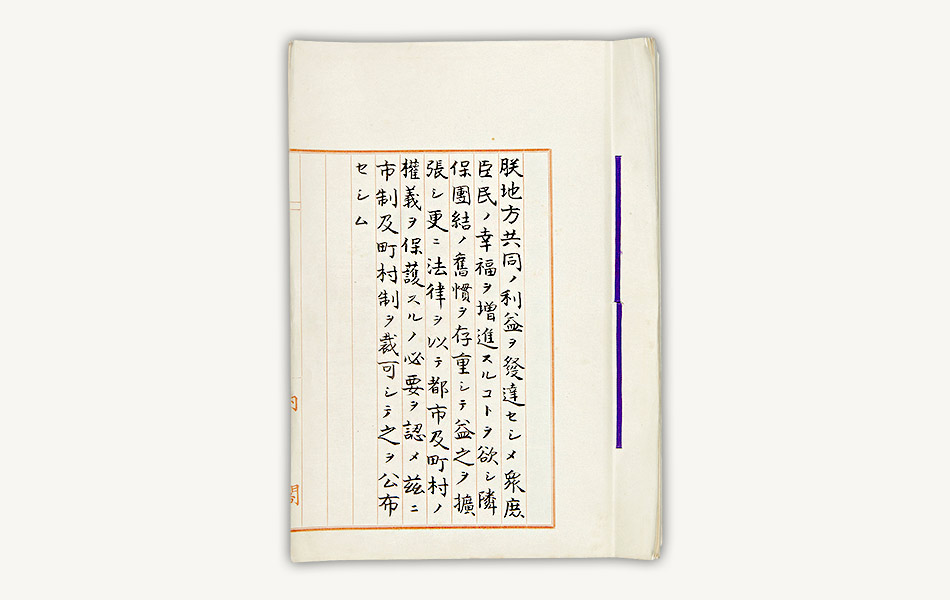 朕地方共同ノ利益ヲ發達セシメ衆庶
臣民ノ幸福ヲ增進スルコトヲ欲シ隣
保團結ノ舊慣ヲ存重シテ益之ヲ擴
張シ更ニ法律ヲ以テ都市及町村ノ
權義ヲ保護スルノ必要ヲ認メ茲ニ
市制及町村制ヲ裁可シテ之ヲ公布
セシム
內閣